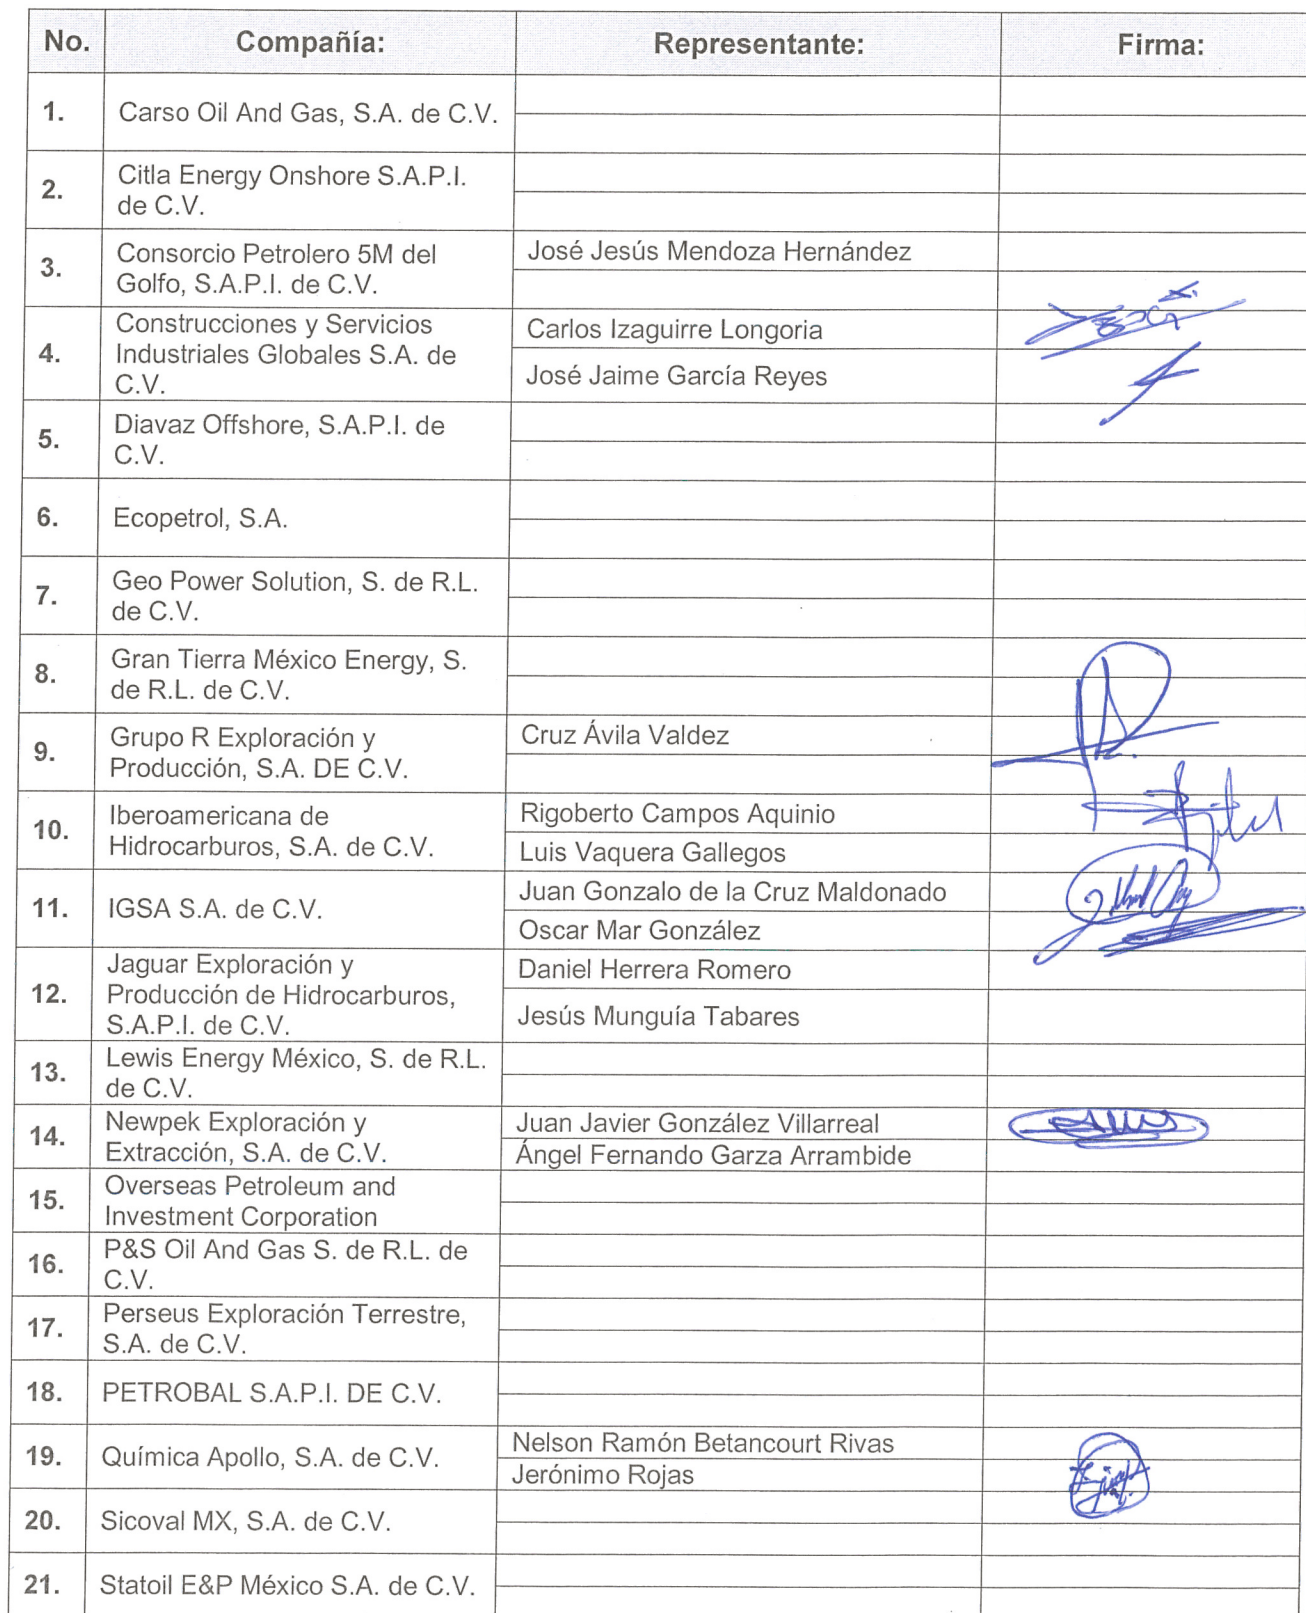 No. Compañía: Representante: Firma:
1. Carso Oil And Gas, S.A. de C.V.
2. Citla Energy Onshore S.A.P.I.
de C.V.
3. Consorcio Petrolero 5M del
Golfo, S.A.P.I. de C.V.
José Jesús Mendoza Hernández
4. Construcciones y Servicios
Industriales Globales S.A. de
C.V.
Carlos Izaguirre Longoria
José Jaime García Reyes
5. Diavaz Offshore, S.A.P.I. de
C.V.
6. Ecopetrol, S.A.
7. Geo Power Solution, S. de R.L.
de C.V.
8. Gran Tierra México Energy, S.
de R.L. de C.V.
9. Grupo R Exploración y
Producción, S.A. DE C.V.
Cruz Ávila Valdez
10. Iberoamericana de
Hidrocarburos, S.A. de C.V.
Rigoberto Campos Aquinio
Luis Vaquera Gallegos
11. IGSA S.A. de C.V.
Juan Gonzalo de la Cruz Maldonado
Oscar Mar González
12. Jaguar Exploración y
Producción de Hidrocarburos,
S.A.P.I. de C.V.
Daniel Herrera Romero
Jesús Munguía Tabares
13. Lewis Energy México, S. de R.L.
de C.V.
14. Newpek Exploración y
Extracción, S.A. de C.V.
Juan Javier González Villarreal
Ángel Fernando Garza Arrambide
15. Overseas Petroleum and
Investment Corporation
16. P&S Oil And Gas S. de R.L. de
C.V.
17. Perseus Exploración Terrestre,
S.A. de C.V.
18. PETROBAL S.A.P.I. DE C.V.
19. Química Apollo, S.A. de C.V.
Nelson Ramón Betancourt Rivas
Jerónimo Rojas
20. Sicoval MX, S.A. de C.V.
21. Statoil E&P México S.A. de C.V.